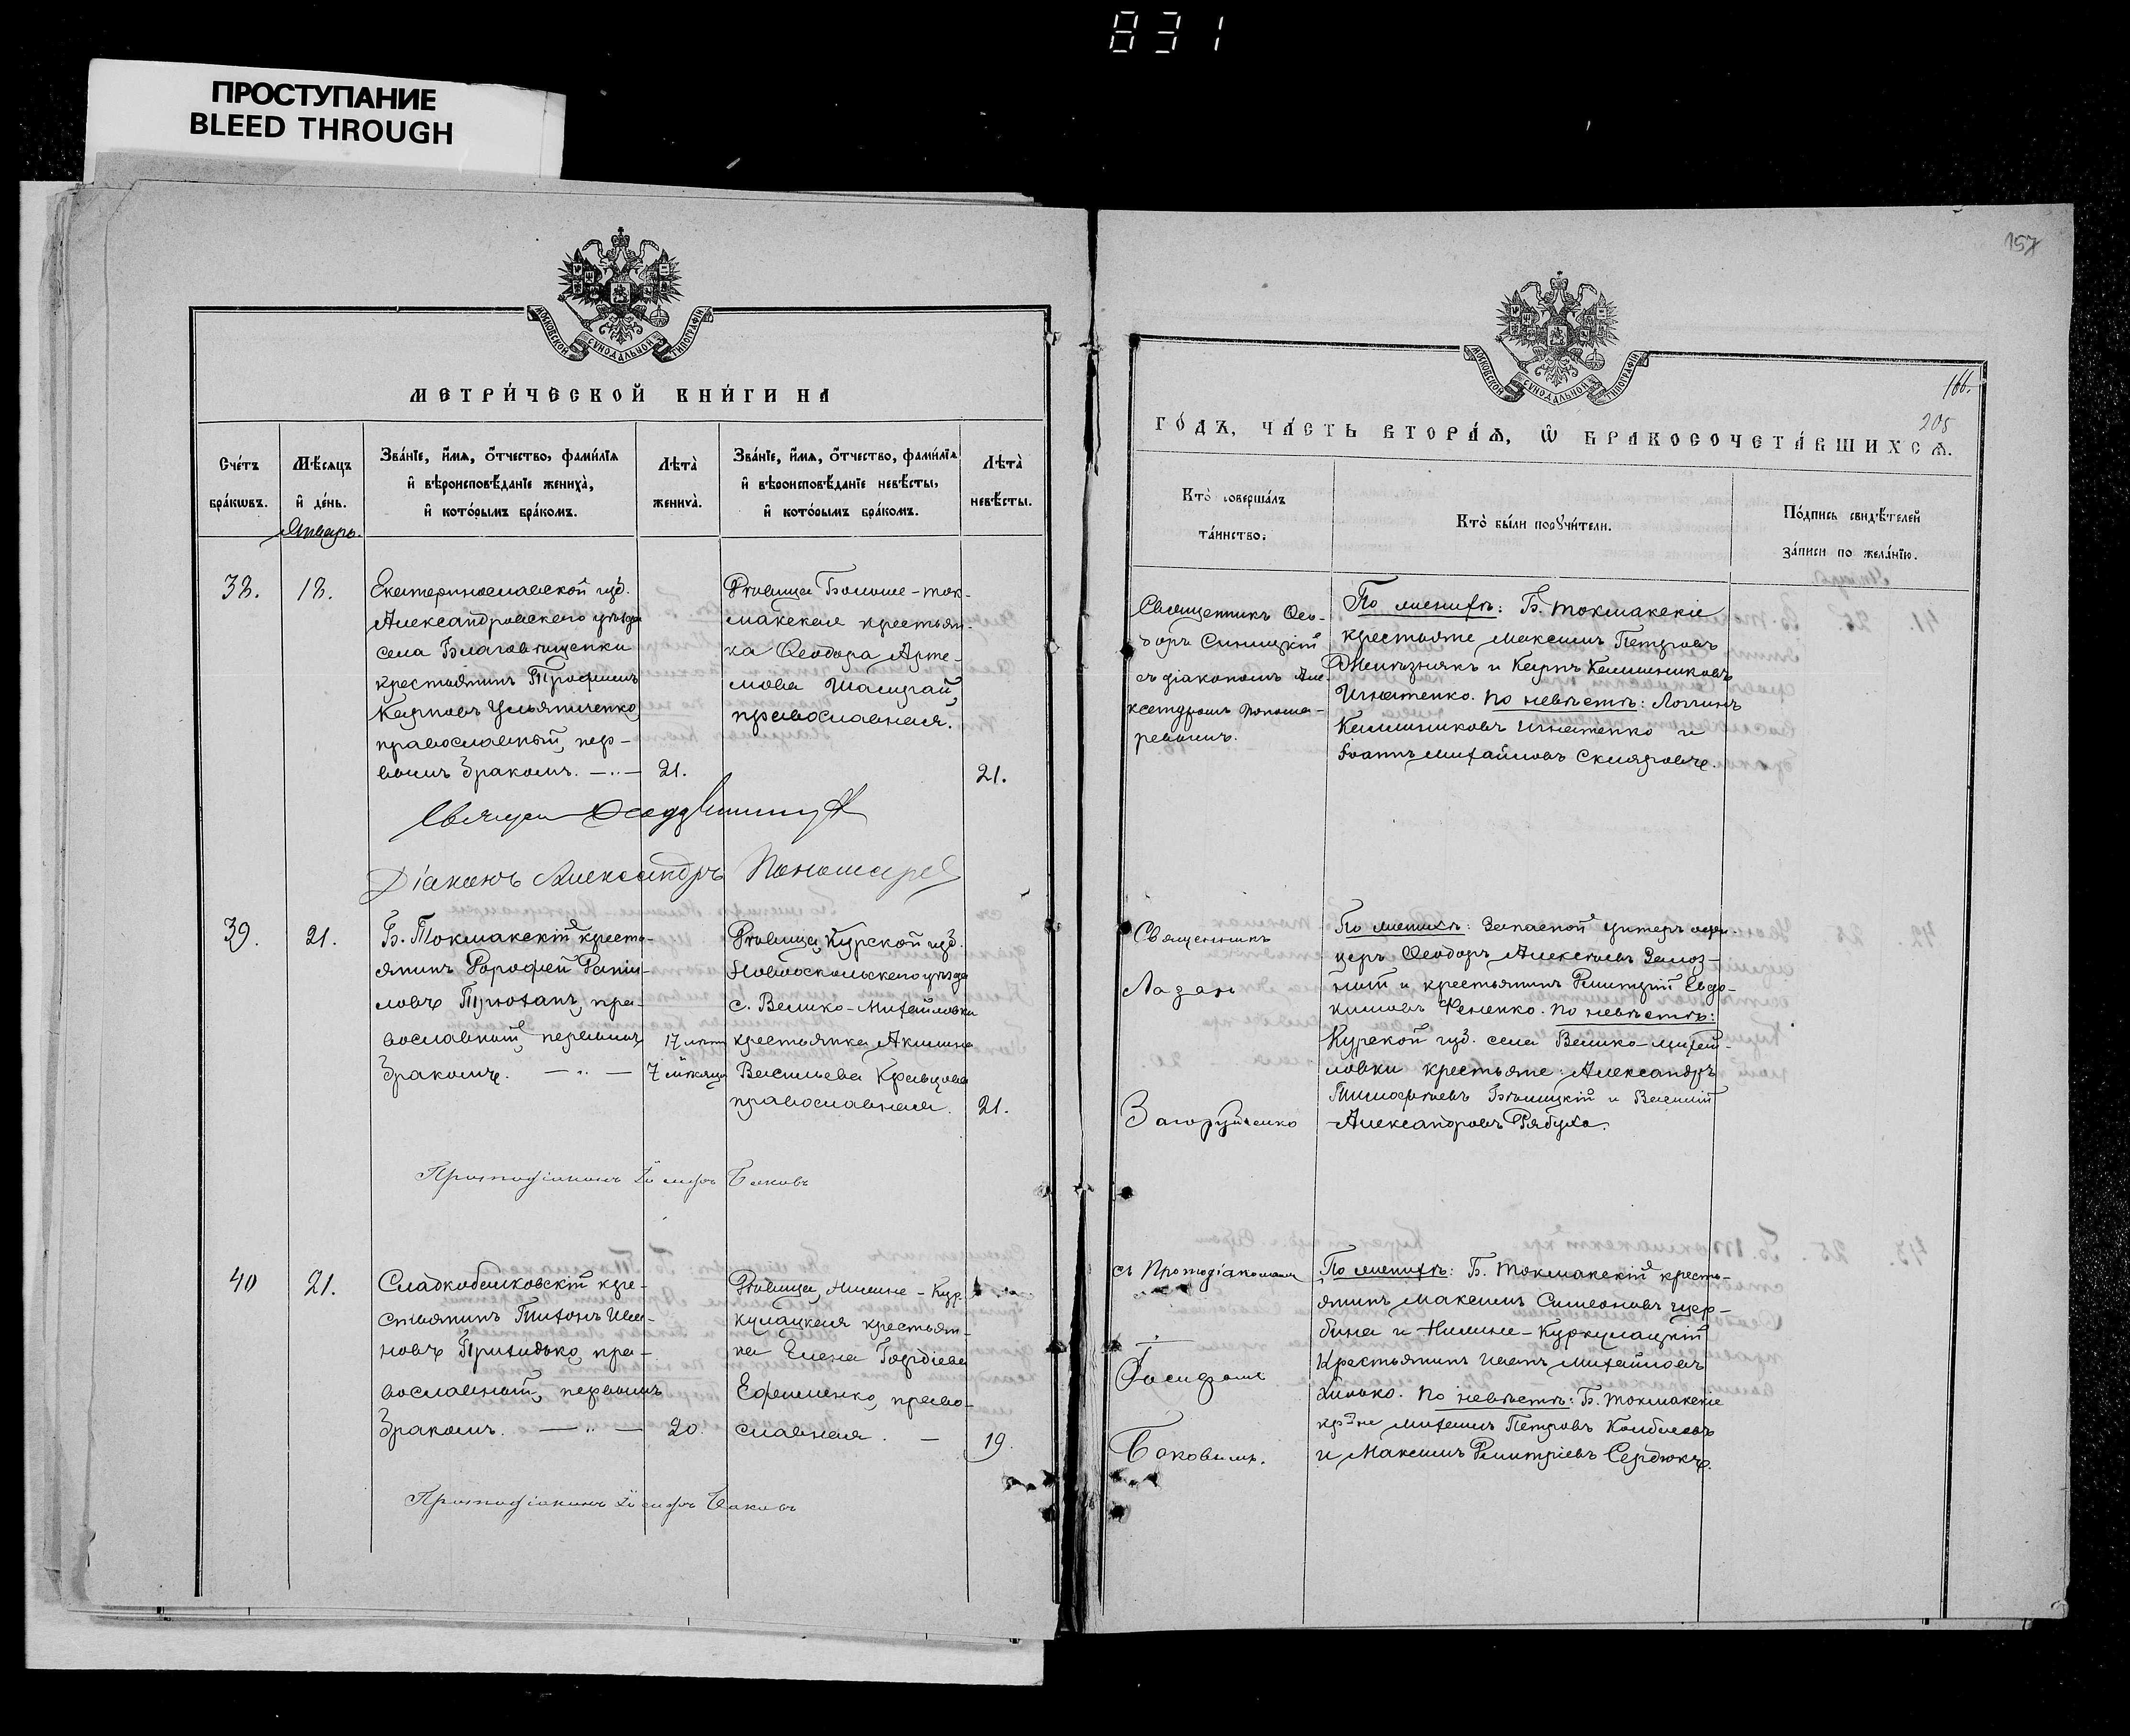 831
ПРОСТУПАНИЕ
BLEED THROUGH
157
МОСКОВСКОЙ СѴНОДАЛЬНОЙ ТИПОГРАФІИ
МЕТРИ́ЧЕСКОЙ КНИ́ГИ НА
Сче́тъ бра́кѡвъ.
Мѣ́сяцъ и҆ де́нь.
Зва́нїе, и҆́мя, о҆́тчество, фами́лїя
и҆ вѣроисповѣ́данїе жениха̀,
и҆ кото́рымъ бра́комъ.
Лѣта̀ жениха̀.
Зва́нїе, и҆́мя, о҆́тчество, фами́лїя
и҆ вѣроисповѣ́данїе невѣ́сты,
и҆ кото́рымъ бра́комъ.
Лѣта̀ невѣ́сты.
Январь.
38.
18.
Екатеринославской губ.
Александровскаго уѣзда
села Благовѣщенки
крестьянинъ Трофимъ
Карповъ Ульянченко,
православный, пер-
вымъ бракомъ. —..—
21.
Дѣвица Больше-Ток-
макская крестьян-
ка Ѳеодора Арте-
мова Шамрай,
православная.
21.
Діаконъ Александръ Пономарев
39.
21.
Б. Токмакскій кресть-
янинъ Дорофей Дани-
ловъ Трюханъ, пра-
вославный, первымъ
бракомъ. — .. —
17 лѣтъ
7 мѣсяц
Дѣвица, Курской губ.
Новооскольскаго уѣзда
с. Велико-Михайловки
крестьянка Акилина
Васильева Кравцова
православная.
21.
Протодіаконъ Іосифъ Баковъ
40
21.
Сладкобалковскій кре-
стьянинъ Тихонъ Ива-
новъ Прихидько, пра-
вославный, первымъ
бракомъ. — .. —
20.
Дѣвица, Нижне-Кур-
кулацкая крестьян-
ка Елена Гордіева
Ефименко, право-
славная. —
19.
Протодіаконъ Іосифъ Баковъ
МОСКОВСКОЙ СѴНОДАЛЬНОЙ ТИПОГРАФІИ
166.
205
ГО́ДЪ, ЧА́СТЬ ВТОРА́Я, Ѡ҆ БРАКОСОЧЕТА́ВШИХСЯ.
Кто̀ соверша́лъ
та́инство.
Кто̀ бы́ли порꙋчи́тели.
По́дпись свидѣ́телей
за́писи по жела́нїю.
Священникъ Ѳео-
доръ Синицкій
съ діакономъ Але-
ксандромъ Понома-
ревымъ.
По женихѣ: Б. Токмакскіе
крестьяне Максимъ Петровъ
Желѣзнякъ и Карпъ Каллиниковъ
Игнатенко. По невѣстѣ: Логинъ
Каллиниковъ Игнатенко и
Іоаннъ Михайловъ Скляровъ.
Священникъ
Лазарь
Загоруйченко
По женихѣ: Запасной унтеръ офи-
церъ Ѳеодоръ Алексѣевъ Замоз-
ный и крестьянинъ Дмитрій Евдо-
кимовъ Фененко. По невѣстѣ:
Курской губ. села Велико-Михай-
ловки крестьяне: Александръ
Тимофѣевъ Бѣлицкій и Василій
Александровъ Рябуха.
съ Протодіакономъ
Іосифомъ
Баковымъ.
По женихѣ: Б. Токмакскій кресть-
янинъ Максимъ Симеоновъ Щер-
бина и Нижне-Куркулацкій
крестьянинъ Иванъ Михайловъ
Хилько. По невѣстѣ: Б. Токмакскіе
кр-не Михаилъ Петровъ
и Максимъ Дмитріевъ Сердюкъ.